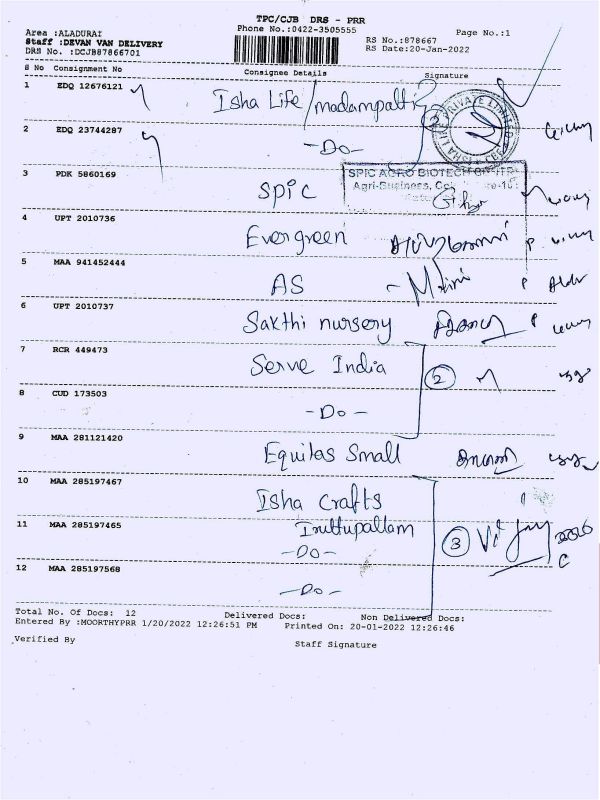 TPC/CJB DRS - PRR
Area :ALADURAI Phone No.:0422-3505555 Page No.:1
Staff :DEVAN VAN DELIVERY RS No.:878667
DRS No. :DCJB87866701 RS Date:20-Jan-2022
S No Consignment No Consignee Details Signature
1 EDQ 12676121 Isha Life/madampatti
2 EDQ 23744287 -Do-
ISHA LIFE PRIVATE LIMITED
3 PDK 5860169 Spic
SPIC AGRO BIOTECH
Agri-Business,
4 UPT 2010736 Evergreen
5 MAA 941452444 AS
6 UPT 2010737 Sakthi nursery
7 RCR 449473 Serve India 2
8 CUD 173503 -Do-
9 MAA 281121420 Equitas Small
10 MAA 285197467 Isha Crafts
Iruttupallam
11 MAA 285197465 -Do- 3
12 MAA 285197568 -Do-
Total No. Of Docs: 12 Delivered Docs: Non Delivered Docs:
Entered By :MOORTHYPRR 1/20/2022 12:26:51 PM Printed On: 20-01-2022 12:26:46
Verified By Staff Signature